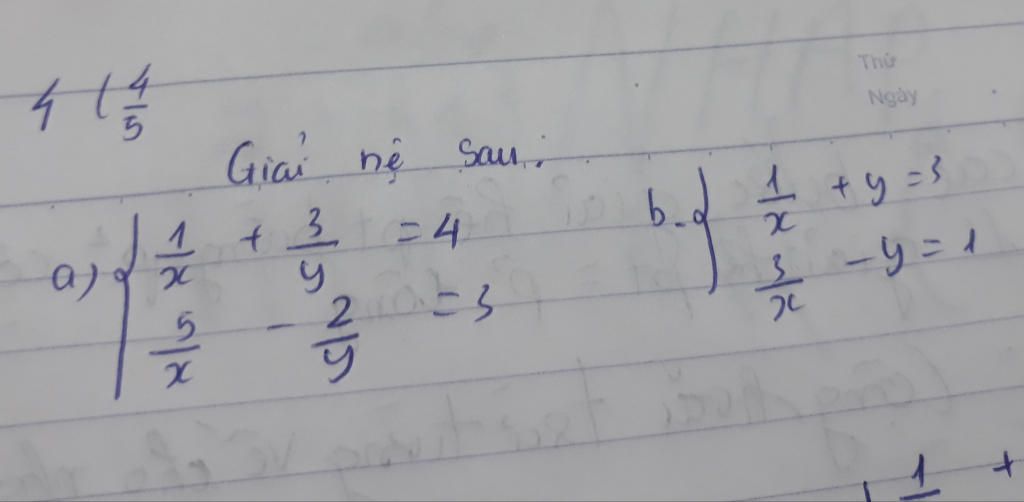 Thứ
Ngày
4 ( 4/5
Giải hệ sau:
a) { 1/x + 3/y = 4
5/x - 2/y = 3
b. { 1/x + y = 3
3/x - y = 1
1 +